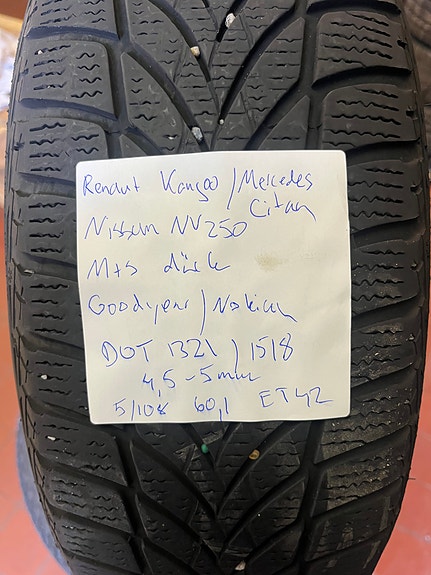 Renaut Kangoo / Mercedes
Citan
Nissan NV250
M+S
Goodyear / Nokian
DOT 1321 / 1518
4,5-5mm
5/108 60,1 ET42